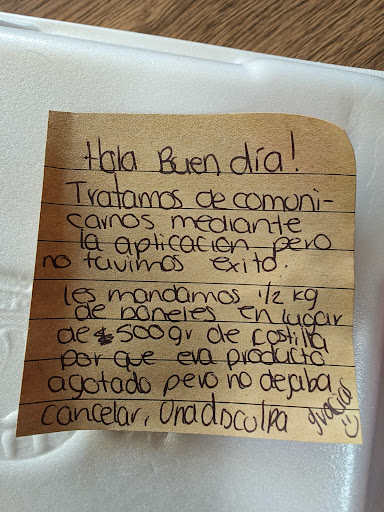 Hola Buen día!
Tratamos de comuni-
carnos mediante
la aplicación pero
no tuvimos exito.
les mandamos 1/2 kg
de paneles en lugar
de 500gr de costilla
por que era producto
agotado pero no dejaba
cancelar, Una disculpa
gracias